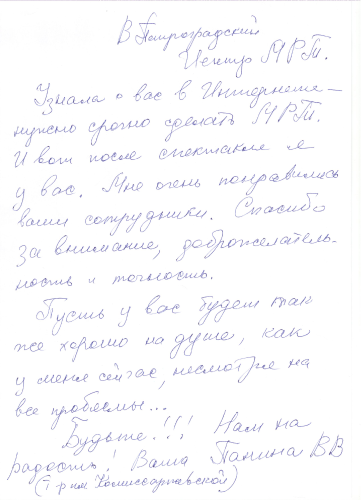 В Петроградский
Центр МРТ.
Узнала о вас в Интернете –
нужно срочно сделать МРТ.
И вот после спектакля я
у вас. Мне очень понравились
ваши сотрудники. Спасибо
за внимание, доброжелатель-
ность и точность.
Пусть у вас будет так
же хорошо на душе, как
у меня сейчас, несмотря на
все проблемы...
Будьте!!! Нам на
радость! Ваша Панина ВВ
(Т-р им Комиссаржевской)